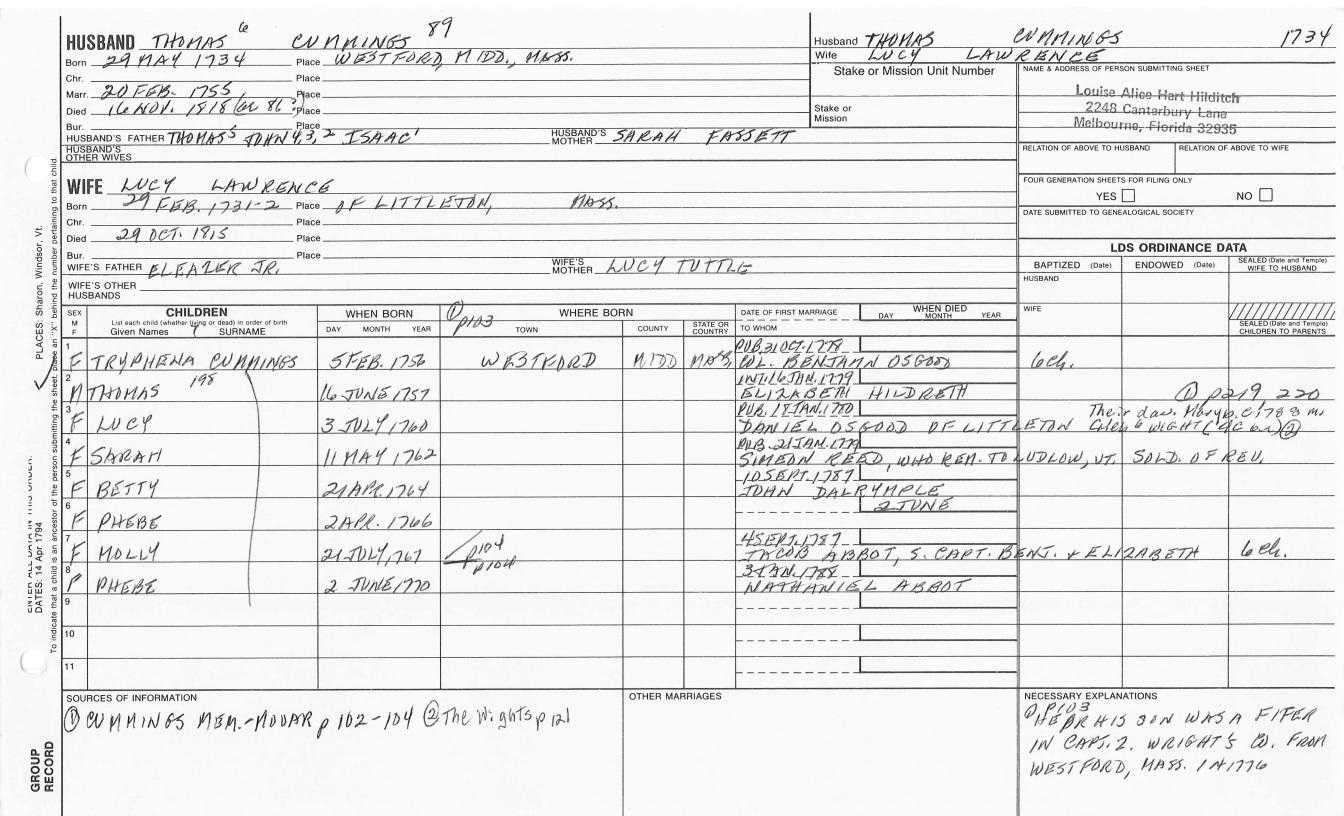 HUSBAND THOMAS 6 CUMMINGS 89
Born 29 MAY 1734 Place WESTFORD, MIDD., MASS.
Chr. Place
Marr. 20 FEB. 1755, Place
Died 16 NOV. 1818 (or 86?) Place
Bur. Place
HUSBAND'S FATHER THOMAS5 JOHN 4,3,2 ISAAC1 HUSBAND'S MOTHER SARAH FASSETT
HUSBAND'S OTHER WIVES
Husband THOMAS CUMMINGS 1734
Wife LUCY LAWRENCE
Stake or Mission Unit Number
Stake or Mission
NAME & ADDRESS OF PERSON SUBMITTING SHEET
Louise Alice Hart Hilditch
2248 Canterbury Lane
Melbourne, Florida 32935
RELATION OF ABOVE TO HUSBAND RELATION OF ABOVE TO WIFE
FOUR GENERATION SHEETS FOR FILING ONLY
YES NO
DATE SUBMITTED TO GENEALOGICAL SOCIETY
WIFE LUCY LAWRENCE
Born 29 FEB. 1731-2 Place OF LITTLETON, MASS.
Chr. Place
Died 29 OCT. 1815 Place
Bur. Place
WIFE'S FATHER ELEAZER JR. WIFE'S MOTHER LUCY TUTTLE
WIFE'S OTHER HUSBANDS
LDS ORDINANCE DATA
BAPTIZED (Date) ENDOWED (Date) SEALED (Date and Temple) WIFE TO HUSBAND
HUSBAND
WIFE
SEALED (Date and Temple) CHILDREN TO PARENTS
SEX M F CHILDREN WHEN BORN ① p103 WHERE BORN DATE OF FIRST MARRIAGE WHEN DIED
List each child (whether living or dead) in order of birth
Given Names SURNAME DAY MONTH YEAR TOWN COUNTY STATE OR COUNTRY TO WHOM DAY MONTH YEAR
PUB. 31 OCT. 1778
1 F TRYPHENA CUMMINGS 5 FEB. 1756 WESTFORD MIDD MASS, COL. BENJAMN OSGOOD 6 ch.
INT. 16 JAN. 1779
2 M THOMAS 198 16 JUNE 1757 ELIZABETH HILDRETH ① p219 220
PUB. 18 JAN. 1780 Their dau. Mary b. c1783 m.
3 F LUCY 3 JULY 1760 DANIEL OSGOOD OF LITTLETON Caleb 6 WIGHT ②
PUB. 21 JAN. 1779
4 F SARAH 11 MAY 1762 SIMEON REED, WHO REM. TO LUDLOW, VT. SOLD. OF REV.
10 SEPT. 1787
5 F BETTY 21 APR. 1764 JOHN DALRYMPLE
6 F PHEBE 2 APR. 1766 2 JUNE
4 SEPT. 1787
7 F MOLLY 21 JULY, 1767 p104 JACOB ABBOT, S. CAPT. BENJ. & ELIZABETH 6 ch.
3 JAN. 1788
8 F PHEBE 2 JUNE 1770 p104 NATHANIEL ABBOT
9
10
11
SOURCES OF INFORMATION
① CUMMINGS MEM.-MOOAR p 102-104 ② The Wights p 121
OTHER MARRIAGES
NECESSARY EXPLANATIONS
① P103
HE OR HIS SON WAS A FIFER
IN CAPT. Z. WRIGHT'S CO. FROM
WESTFORD, MASS. IN 1776
PLACES: Sharon, Windsor, Vt.
ENTER ALL DATA IN THIS ORDER:
DATES: 14 Apr 1794
To indicate that a child is an ancestor of the person submitting the sheet, place an "X" behind the number pertaining to that child.
GROUP RECORD